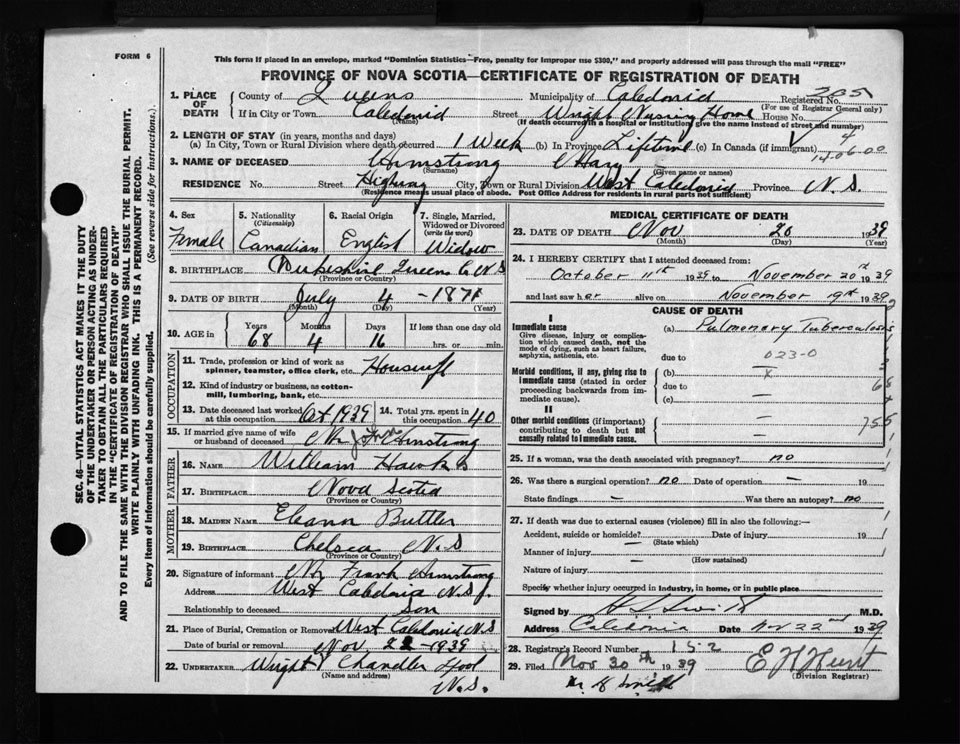 FORM 6
This form if placed in an envelope, marked "Dominion Statistics—Free, penalty for improper use $300," and properly addressed will pass through the mail "FREE"
PROVINCE OF NOVA SCOTIA—CERTIFICATE OF REGISTRATION OF DEATH
1. PLACE OF DEATH
County of Queens Municipality of Caledonia Registered No. 205
(For use of Registrar General only)
If in City or Town Caledonia Street Wright Nursing Home House No.
(Name) (If death occurred in a hospital or institution, give the name instead of street and number)
2. LENGTH OF STAY (in years, months and days)
(a) In City, Town or Rural Division where death occurred 1 Week (b) In Province Lifetime (c) In Canada (if immigrant)
4
14-06-00
3. NAME OF DECEASED Armstrong Mary
(Surname) (Given name or names)
RESIDENCE No. Street Highway City, Town or Rural Division West Caledonia Province N.S.
(Residence means usual place of abode. Post Office Address for residents in rural parts not sufficient)
4. Sex Female
5. Nationality (Citizenship) Canadian
6. Racial Origin English
7. Single, Married, Widowed or Divorced (write the word) Widow
8. BIRTHPLACE Queens C N S
(Province or Country)
9. DATE OF BIRTH July 4 - 1871
(Month) (Day) (Year)
10. AGE in Years 68 Months 4 Days 16 If less than one day old hrs. or min.
OCCUPATION
11. Trade, profession or kind of work as spinner, teamster, office clerk, etc. Housewife
12. Kind of industry or business, as cotton-mill, lumbering, bank, etc.
13. Date deceased last worked at this occupation Oct 1939
14. Total yrs. spent in this occupation 40
15. If married give name of wife or husband of deceased Armstrong
FATHER
16. NAME William Hawks
17. BIRTHPLACE Nova Scotia
(Province or Country)
MOTHER
18. MAIDEN NAME Eleanor Buttler
19. BIRTHPLACE Chelsea N.S
(Province or Country)
20. Signature of informant Mr Frank Armstrong
Address West Caledonia N.S.
Relationship to deceased Son
21. Place of Burial, Cremation or Removal West Caledonia N.S
Date of burial or removal Nov 22 1939
22. UNDERTAKER Wright Chandler
(Name and address)
N.S.
MEDICAL CERTIFICATE OF DEATH
23. DATE OF DEATH Nov 20 1939
(Month) (Day) (Year)
24. I HEREBY CERTIFY that I attended deceased from:
October 11th 1939 to November 20th 1939
and last saw her alive on November 19th 1939
CAUSE OF DEATH
I
Immediate cause
Give disease, injury or complication which caused death, not the mode of dying, such as heart failure, asphyxia, asthenia, etc.
(a) Pulmonary Tuberculosis
due to 023-0
Morbid conditions, if any, giving rise to immediate cause (stated in order proceeding backwards from immediate cause).
(b) x
due to
(c) —
68
II
Other morbid conditions (if important) contributing to death but not causally related to immediate cause.
—
—
755
25. If a woman, was the death associated with pregnancy? no
26. Was there a surgical operation? no Date of operation —
State findings — Was there an autopsy? no
27. If death was due to external causes (violence) fill in also the following:—
Accident, suicide or homicide? — Date of injury 19
(State which)
Manner of injury —
(How sustained)
Nature of injury
Specify whether injury occurred in industry, in home, or in public place
Signed by M.D.
Address Caledonia Date Nov 22nd 1939
28. Registrar's Record Number 152
29. Filed Nov 30th 1939 E H Hunt
(Division Registrar)
SEC. 46—VITAL STATISTICS ACT MAKES IT THE DUTY OF THE UNDERTAKER OR PERSON ACTING AS UNDERTAKER TO OBTAIN ALL THE PARTICULARS REQUIRED IN THE "CERTIFICATE OF REGISTRATION OF DEATH"
AND TO FILE THE SAME WITH THE DIVISION REGISTRAR WHO SHALL ISSUE THE BURIAL PERMIT.
WRITE PLAINLY WITH UNFADING INK. THIS IS A PERMANENT RECORD.
Every item of information should be carefully supplied. (See reverse side for instructions.)